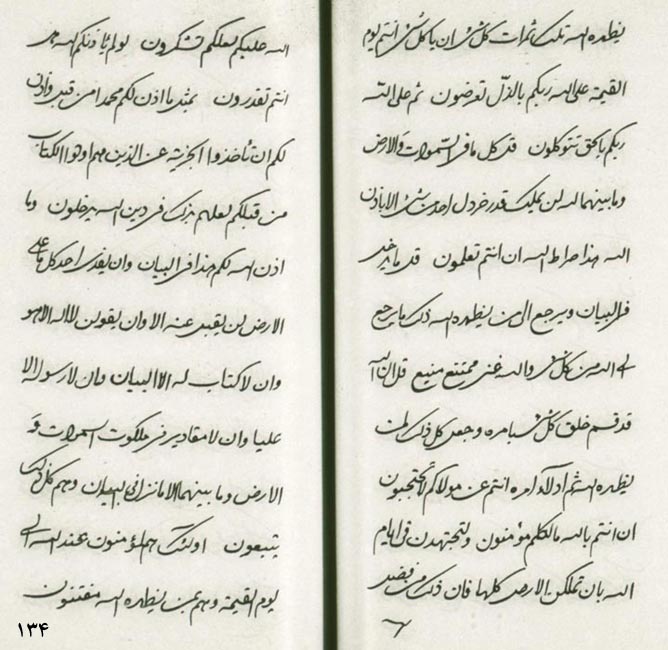 یظهره الله تلک ثمرات کل شیء ان یا کل شیء انتم یوم
القیمة علی الله ربکم بالذل تعرضون ثم علی الله
ربکم بالحق تتوکلون قل کل ما فی السموات والارض
وما بینهما لله لن یملک قدر خردل احد من شیء الا باذن
الله هذا صراط الله ان انتم تعلمون قل ما یدخل
فی البیان ویرجع الی من یظهره الله ذلک ما یرجع
الی الله من کل شیء والله غنی ممتنع منیع قل ان الله
قد قسم خلق کل شیء بامره وجعل کل ذلک لمن
یظهره الله انتم عن مولاکم لا تحتجبون
ان انتم بالله مالککم مؤمنون ولتجتهدن فی ایام
الله بان تملکن الارض کلها فان ذلک من فضل
۶
الله علیکم لعلکم تشکرون ولم یاذنکم الله
انتم تقدرون بمثل ما اذن لکم محمد من قبل واذن
لکم ان تأخذوا الجزیة عن الذین هم اوتوا الکتاب
من قبلکم لعلهم بذلک فی دین الله یدخلون وما
اذن الله لکم هذا فی البیان وان یفدی احد کل ما علی
الارض لن یقبل عنه الا وان یقولن لا اله الا هو
وان لا کتاب له الا البیان وان لا رسول له الا
علیا وان لا مقادیر فی ملکوت السموات و
الارض وما بینهما الا ما نزل فی البیان وهم کل ذلک
یتبعون اولئک هم المؤمنون عند الله الی
یوم القیمة وهم بمن یظهره الله مفتنون
۱۳۴